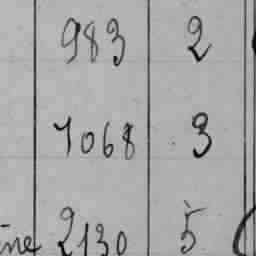 983 2
1068 3
ine 2130 5